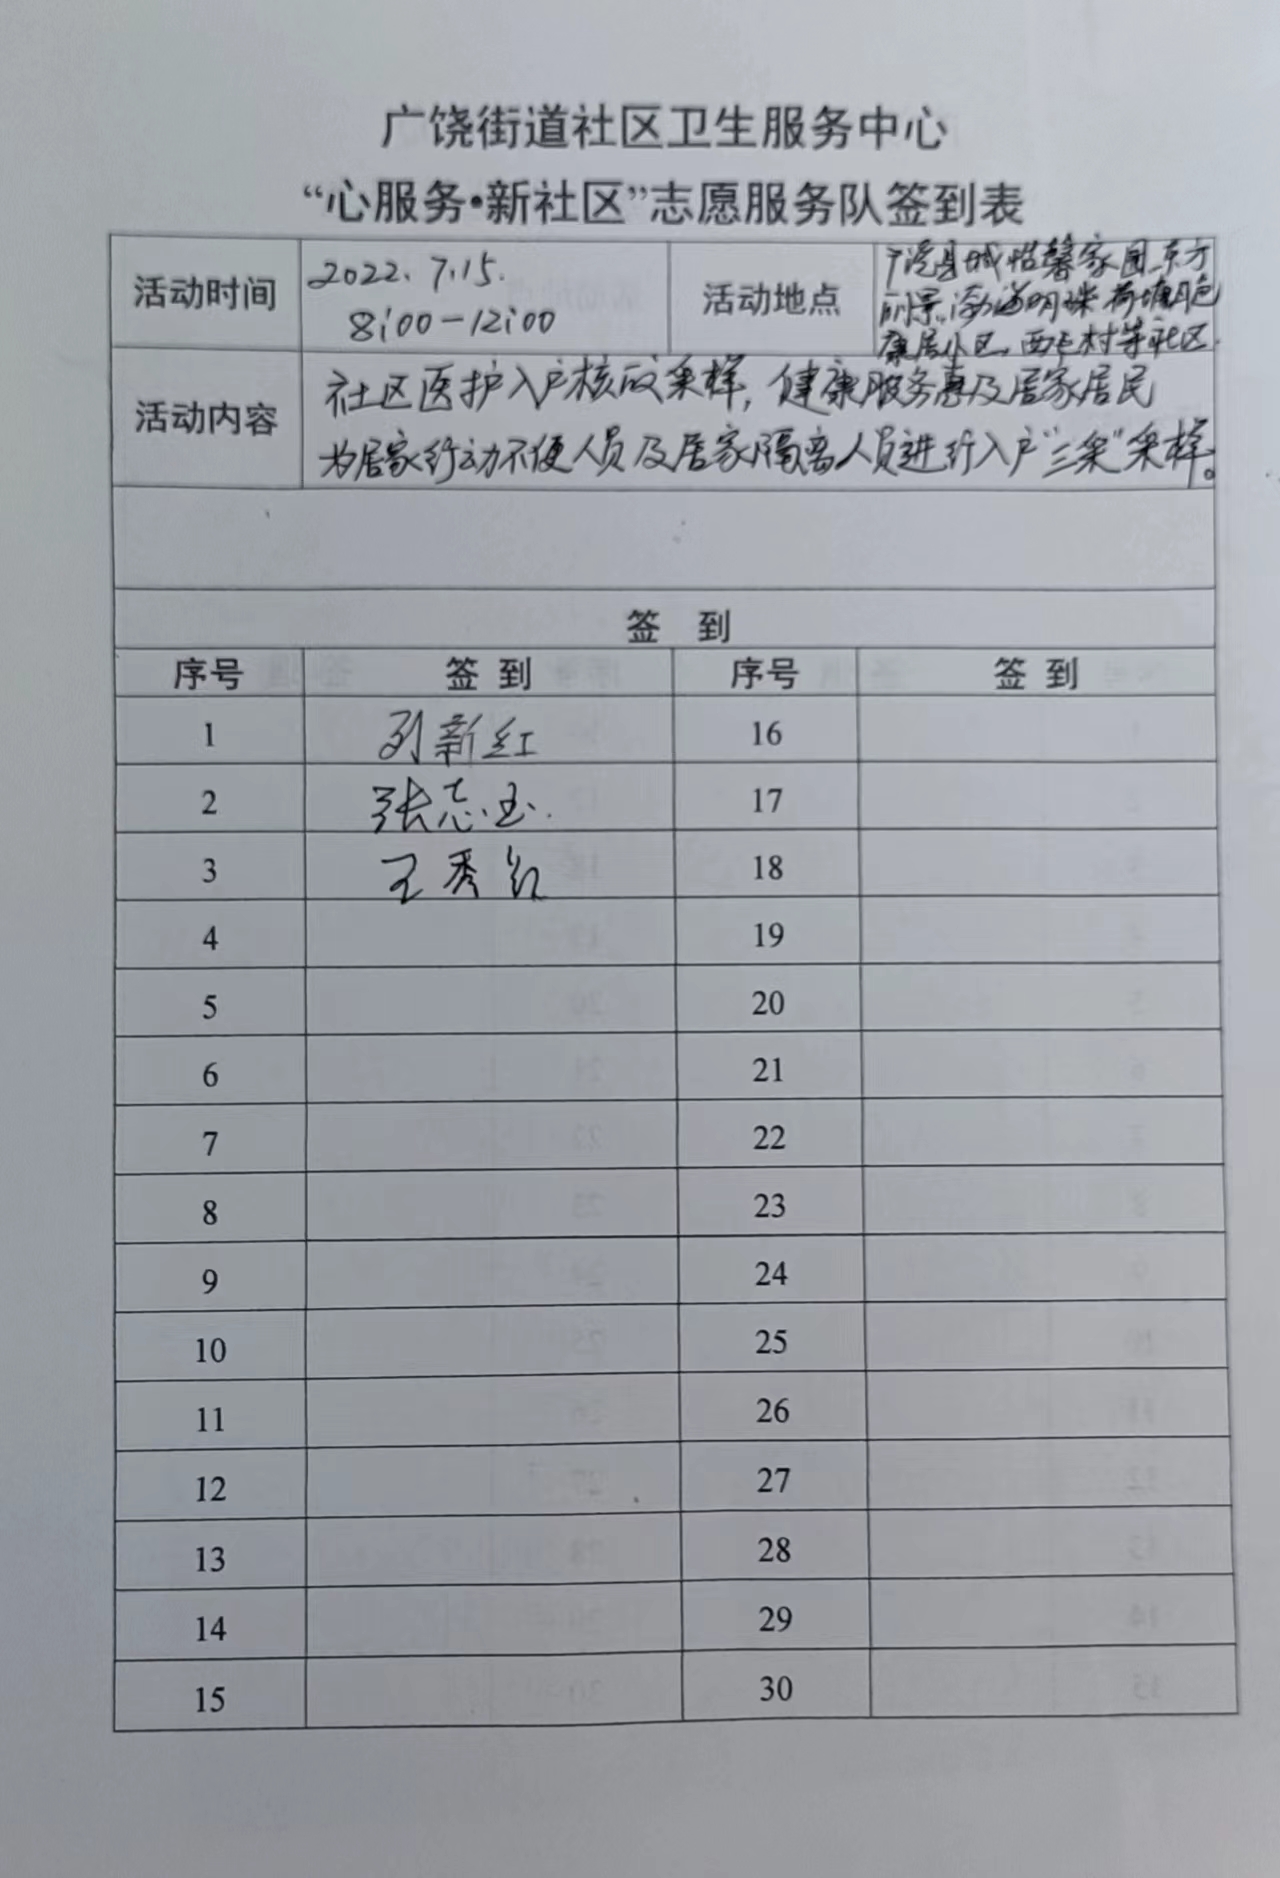 广饶街道社区卫生服务中心
“心服务•新社区”志愿服务队签到表
活动时间
2022.7.15.
8:00-12:00
活动地点
广饶县城怡馨家园、东方
丽景、渤海明珠、荷塘月色
康居小区、西毛村等社区.
活动内容
社区医护入户核酸采样，健康服务惠及居家居民
为居家行动不便人员及居家隔离人员进行入户“三采”采样。
签 到
序号 签 到 序号 签 到
1 刘新红 16
2 张志玉. 17
3 王秀红 18
4 19
5 20
6 21
7 22
8 23
9 24
10 25
11 26
12 27
13 28
14 29
15 30